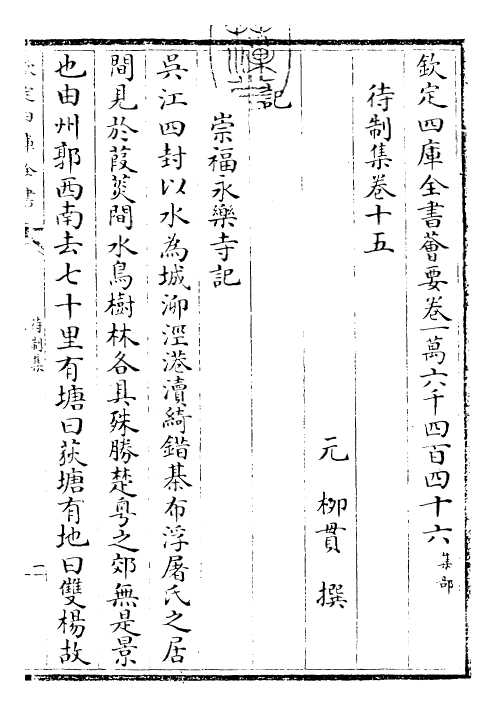 欽定四庫全書薈要卷一萬六千四百四十六集部
待制集卷十五
元 柳貫 撰
記
崇福永樂寺記
吳江四封以水為城泖涇港瀆綺錯棊布浮屠氏之居
間見於葭菼間水鳥樹林各具殊勝楚粤之郊無是景
也由州郭西南去七十里有塘曰荻塘有地曰雙楊故
欽定四庫全書
待制集